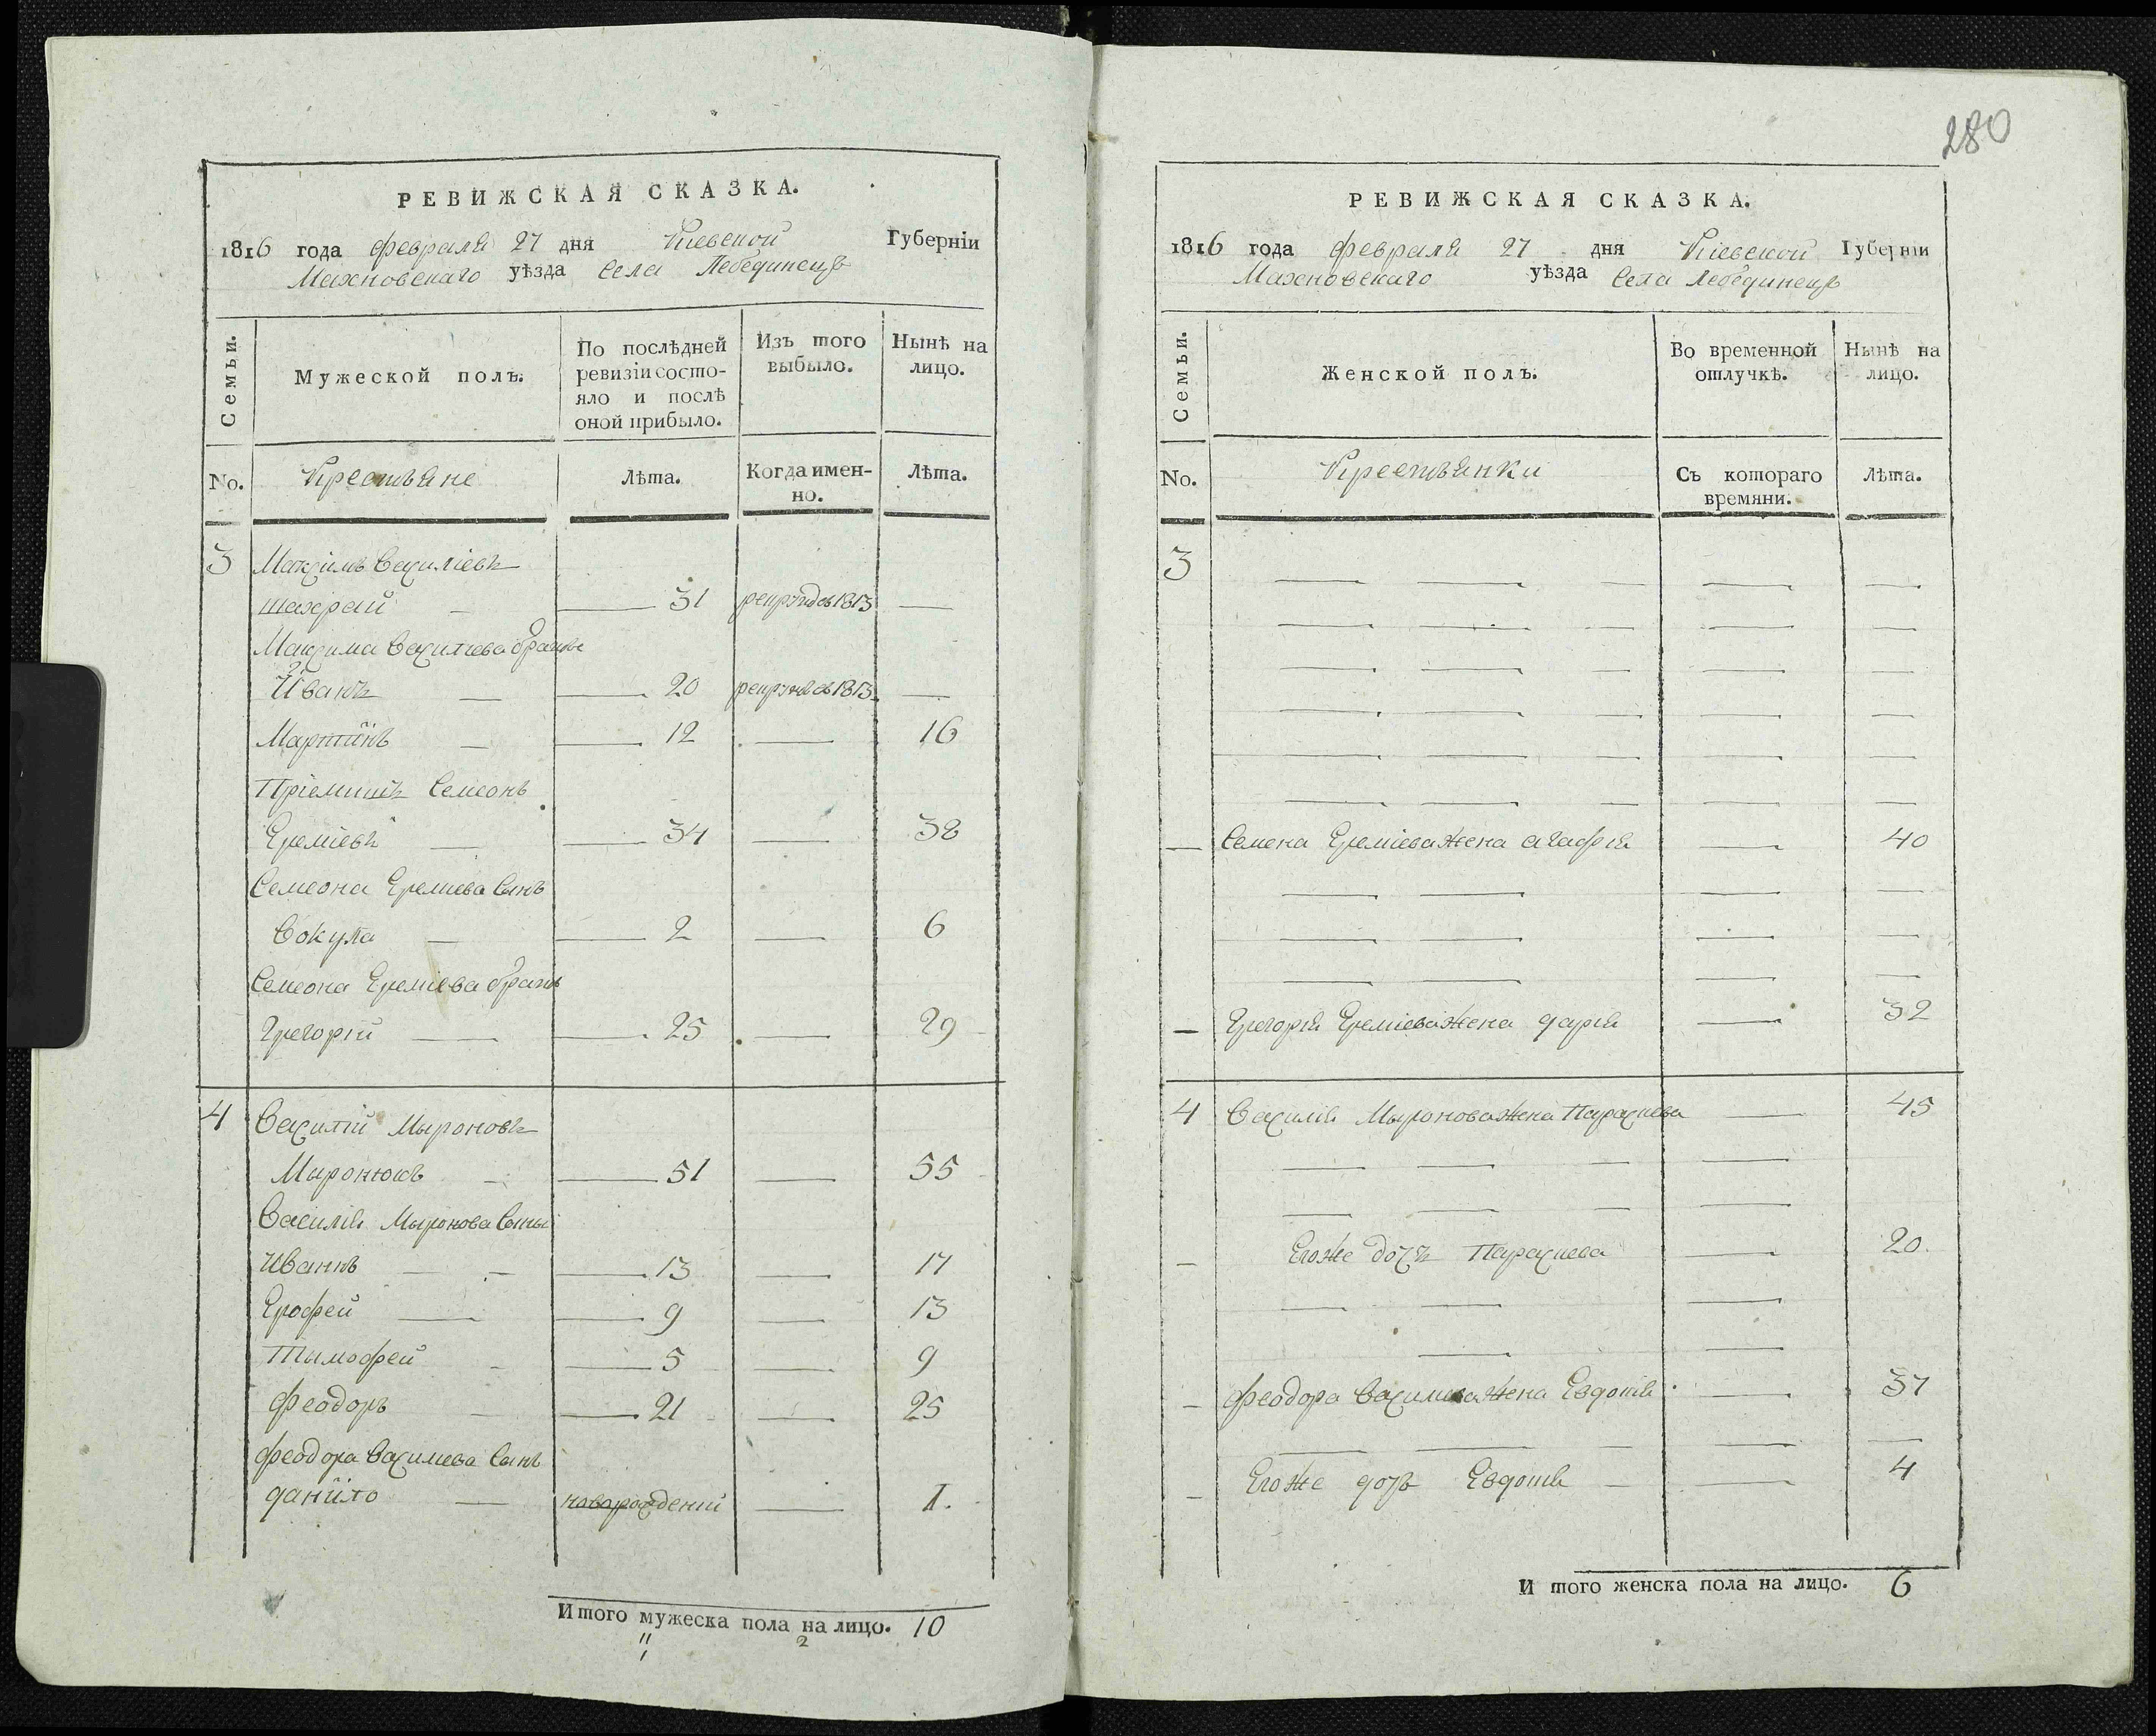 280
РЕВИЖСКАЯ СКАЗКА.
1816 года февраля 27 дня Кіевской Губерніи
Махновскаго уѣзда Села Лебединецъ
Семьи.
Мужеской полъ.
По послѣдней ревизіи состо-
яло и послѣ
оной прибыло.
Изъ того
выбыло.
Нынѣ на
лицо.
No.
Крестьяне
Лѣта.
Когда имен-
но.
Лѣта.
3 Максимъ Василіевъ
шахрай — — 31 рекрутъ съ 1813 —
Максима Василіева братъ
Иванъ — — 20 рекрутъ съ 1813 —
Мартинъ — — 12 — 16
Пріемишъ Семеонъ
Ереміевъ — — 34 — 38
Семеона Ереміева Сынъ
Вокула — — 2 — 6
Семеона Ереміева братъ
Грегорій — — 25 — 29
4 Василій Мыроновъ
Миронюкъ — — 51 — 55
Василія Мыронова Сыны
Иванъ — — 13 — 17
Ерофей — — 9 — 13
Тымофей — — 5 — 9
Феодоръ — — 21 — 25
Феодора Василиева Сынъ
данило — новорожденній — 1.
Итого мужеска пола на лицо. 10
2
РЕВИЖСКАЯ СКАЗКА.
1816 года февраля 27 дня Кіевской Губерніи
Махновскаго уѣзда Села Лебединецъ
Семьи.
Женской полъ.
Во временной
отлучкѣ.
Нынѣ на
лицо.
No.
Крестьянки
Съ котораго
времяни.
Лѣта.
3
— Семена Ереміева жена агафія — 40
— Грегорія Ереміева жена дарія — 32
4 Василія Мыронова жена Параскева — 45
— Егоже дочъ Параскева — 20
— Феодора Василиева жена Евдокія — 37
— Егоже дочъ Евдокія — — 4
И того женска пола на лицо. 6